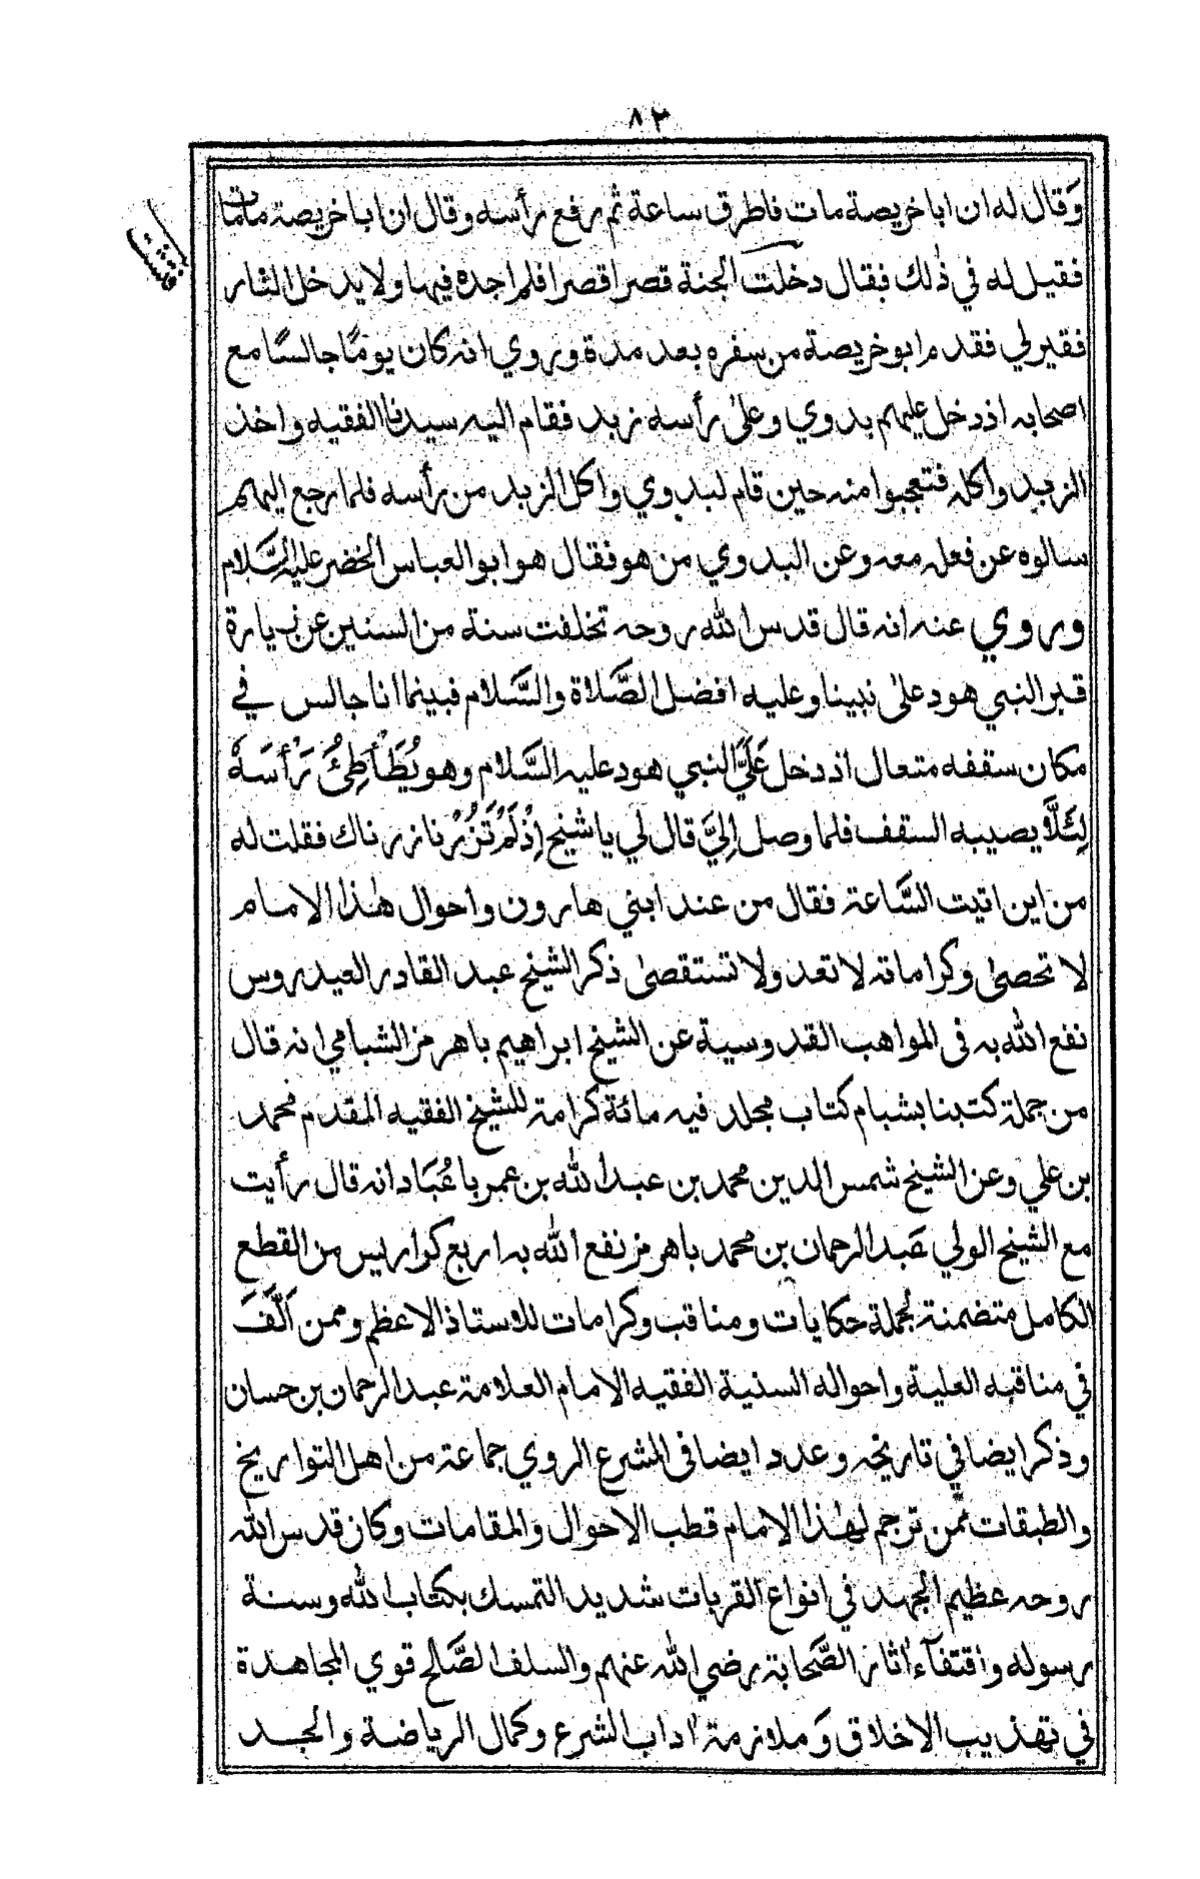 ٨٣
وَقال له ان ابا خريصة مات فاطرق ساعة ثم رفع رأسه وقال ان ابا خريصة ما مات
فقيل له في ذٰلك فقال دخلت الجنة قصرا قصرا فلم اجده فيها ولا يدخل النار
فقير لي فقدم ابو خريصة من سفره بعد مدة وروي انه كان يومًا جالسًا مع
اصحابه اذ دخل عليهم بدوي وعلىٰ رأسه زبد فقام اليه سيدنا الفقيه واخذ
الزبد واكله فتعجبوا منه حين قام لبدوي واكل الزبد من رأسه فلما رجع اليهم
سالوه عن فعله معه وعن البدوي من هو فقال هو ابو العباس الخضر عليه السَّلام
وروي عنه انه قال قدس الله روحه تخلفت سنة من السنين عن زيارة
قبر النبي هود علىٰ نبينا وعليه افضل الصَّلاة والسَّلام فبينما انا جالس في
مكان سقفه متعال اذ دخل عَلَيَّ النبي هود عليه السَّلام وهو يُطَأْطِئُ رَأْسَهُ
لِئَلَّا يصيبه السقف فلما وصل اِليَّ قال لي يا شيخ اِذْ لَمْ تَزُرْنا زرناك فقلت له
من اين اتيت السَّاعة فقال من عند ابني هارون واحوال هٰذا الامام
لا تحصىٰ وكراماته لا تعد ولا تستقصىٰ ذكر الشيخ عبد القادر العيدروس
نفع الله به فى المواهب القدوسية عن الشيخ ابراهيم باهرمز الشبامي انه قال
من جملة كتبنا بشبام كتاب مجلد فيه مائة كرامة للشيخ الفقيه المقدم محمد
بن علي وعن الشيخ شمس الدين محمد بن عبد الله بن عمر با عُبَاد انه قال رأيت
مع الشيخ الولي عبد الرحمان بن محمد باهرمز نفع الله به اربع كواريس من القطع
الكامل متضمنة لجملة حكايات ومناقب وكرامات للاستاذ الاعظم وممن اَلَّفَ
في مناقبه العلية واحواله السنية الفقيه الامام العلامة عبد الرحمان بن حسان
وذكر ايضا في تاريخه وعدد ايضا فى المشرع الروي جماعة من اهل التواريخ
والطبقات ممن ترجم لهٰذا الامام قطب الاحوال والمقامات وكان قدس الله
روحه عظيم الجهد في انواع القربات شديد التمسك بكتاب الله وسنة
رسوله واقتفآء اٰثار الصَّحابة رضي الله عنهم والسلف الصَّالح قوي المجاهدة
في تهذيب الاخلاق وَملازمة اٰداب الشرع وكمال الرياضة والجد